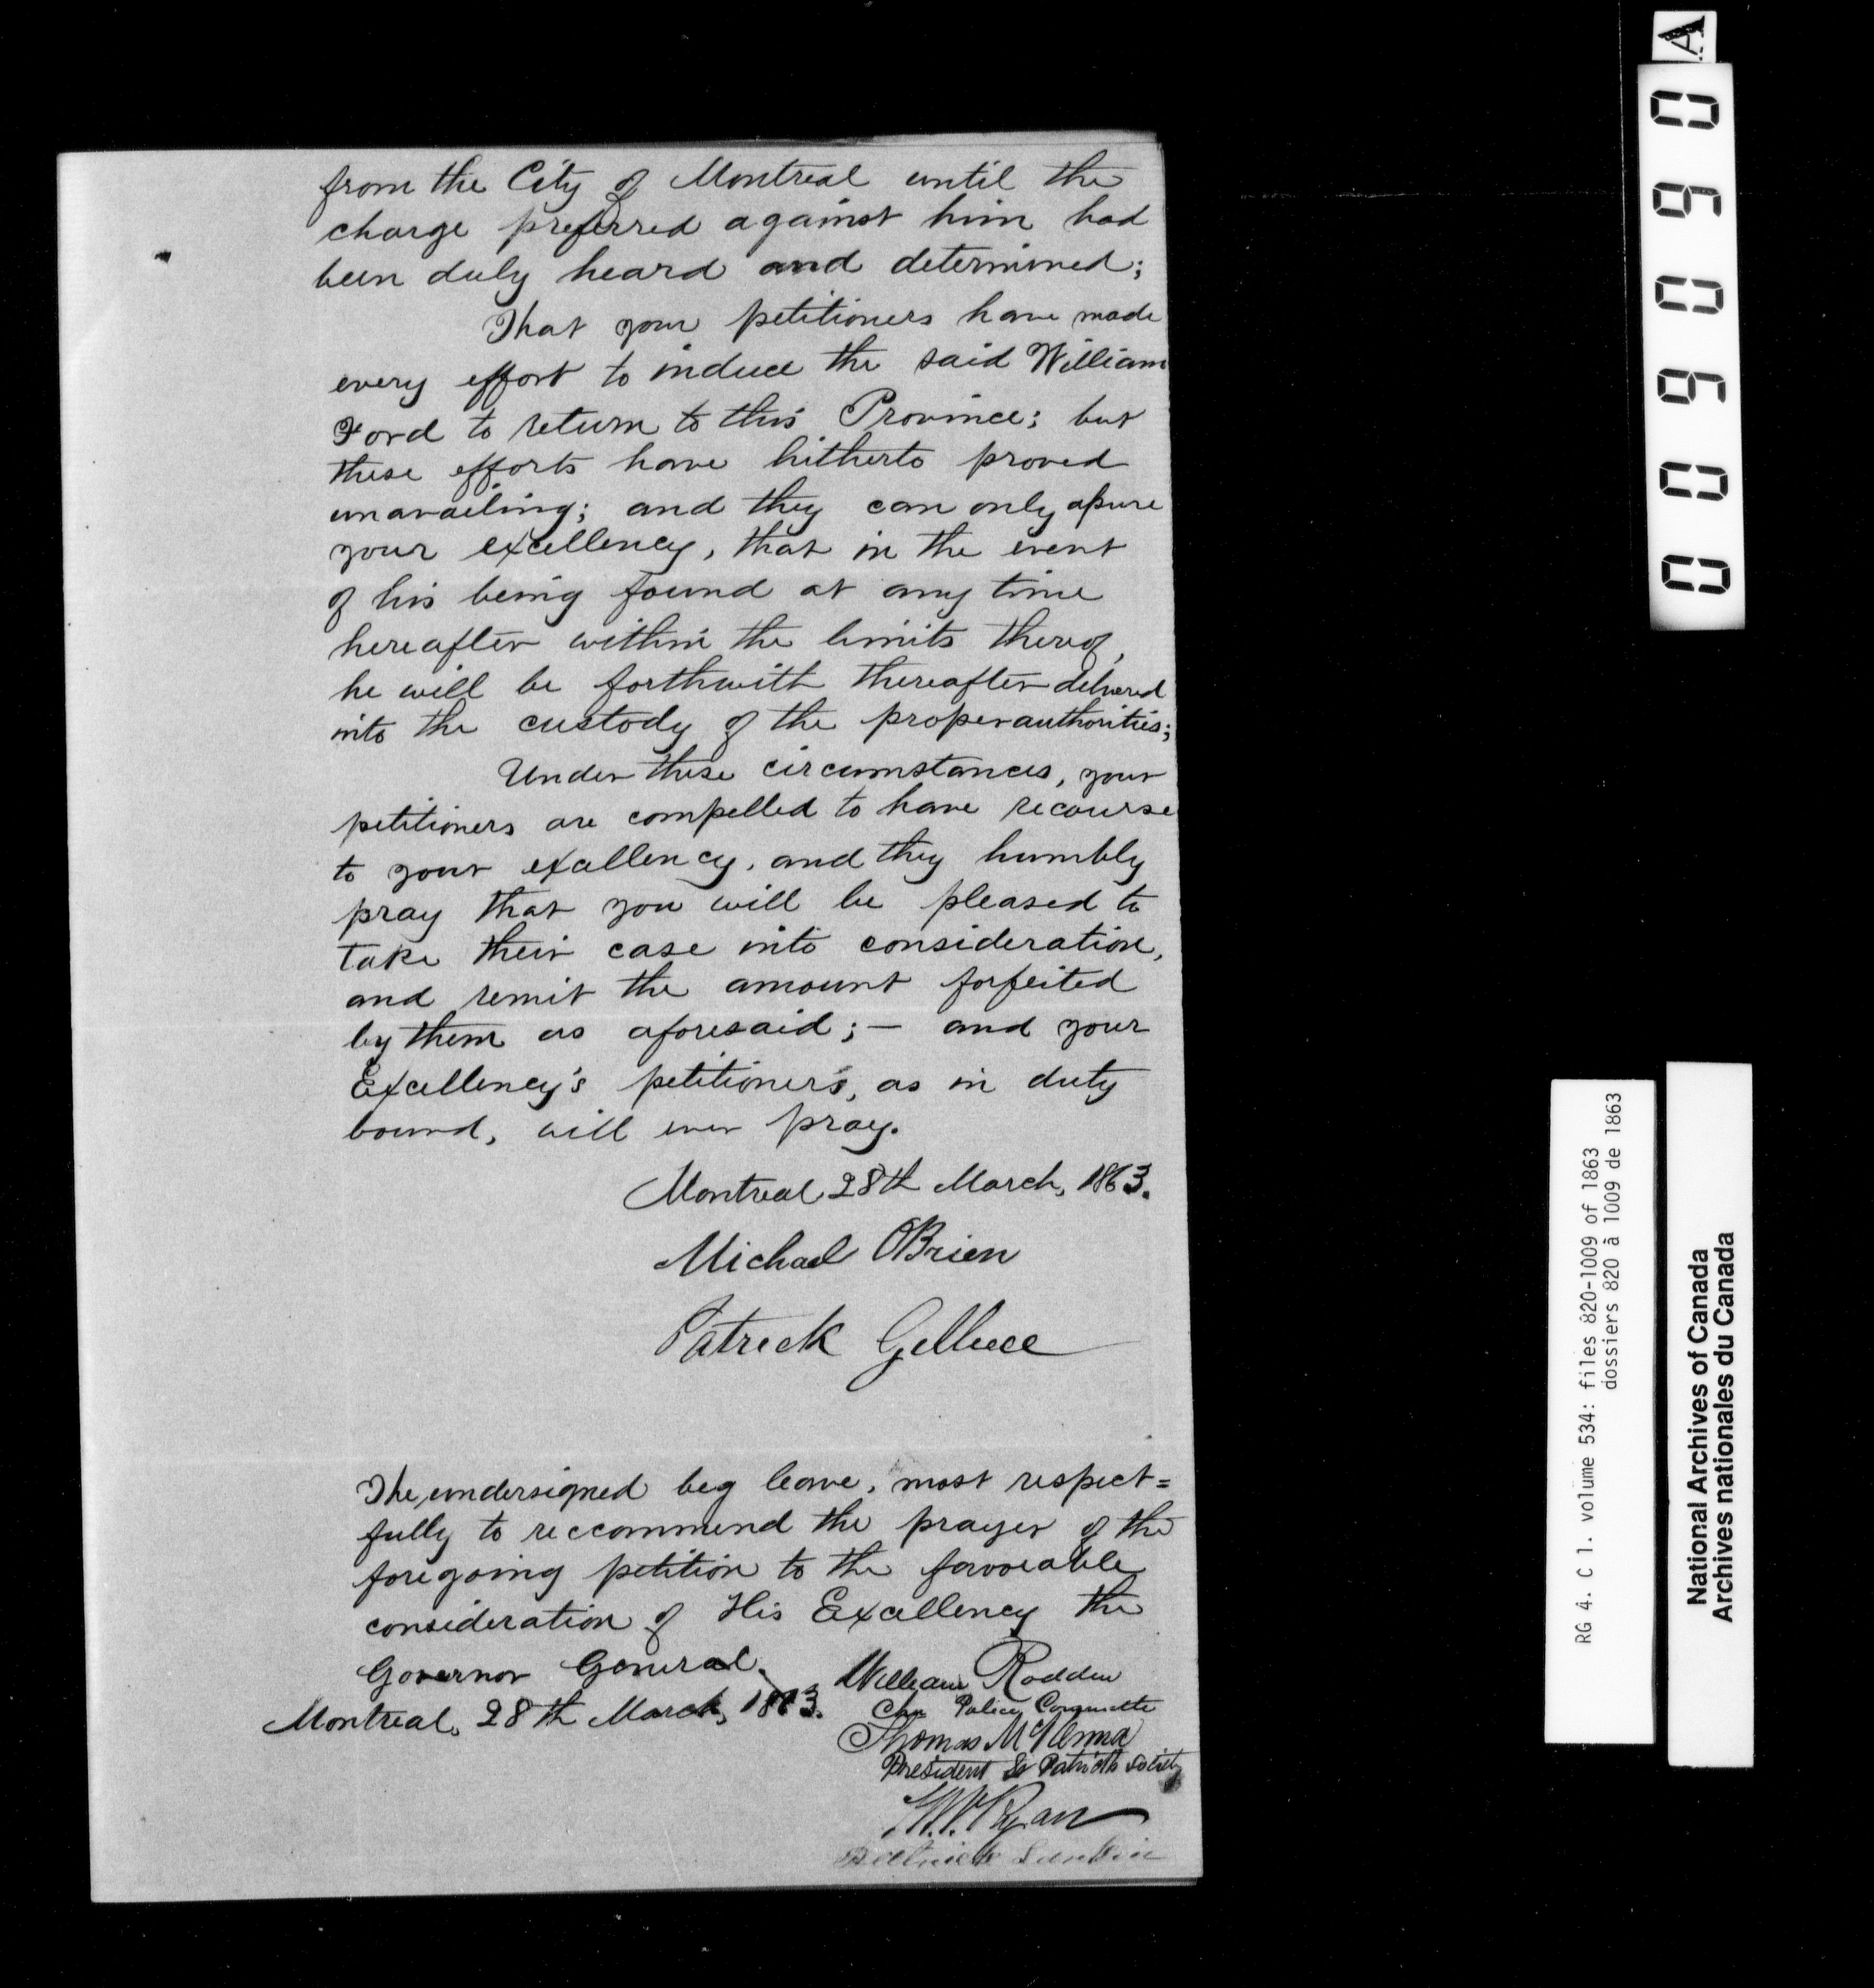 from the City of Montreal until the
charge preferred against him had
been duly heard and determined;
That your petitioners have made
every effort to induce the said William
Ford to return to this Province; but
these efforts have hitherto proved
unavailing; and they can only assure
your excellency, that in the event
of his being found at any time
hereafter within the limits thereof,
he will be forthwith thereafter delivered
into the custody of the proper authorities;
Under these circumstances, your
petitioners are compelled to have recourse
to your excellency, and they humbly
pray that you will be pleased to
take their case into consideration,
and remit the amount forfeited
by them as aforesaid; — and your
Excellency's petitioners, as in duty
bound, will ever pray.
Montreal 28th March, 1863.
Michael OBrien
Patrick
The undersigned beg leave, most respect=
fully to reccommend the prayer of the
foregoing petition to the favorable
consideration of His Excellency the
Governor General.
Montreal, 28th March, 1863.
William Rodden
Chn Police Committe
Thomas McKenna
President St Patricks Society
Ryan
A
0 9 0 9 0 0
RG 4. C 1. volume 534: files 820-1009 of 1863
dossiers 820 à 1009 de 1863
National Archives of Canada
Archives nationales du Canada